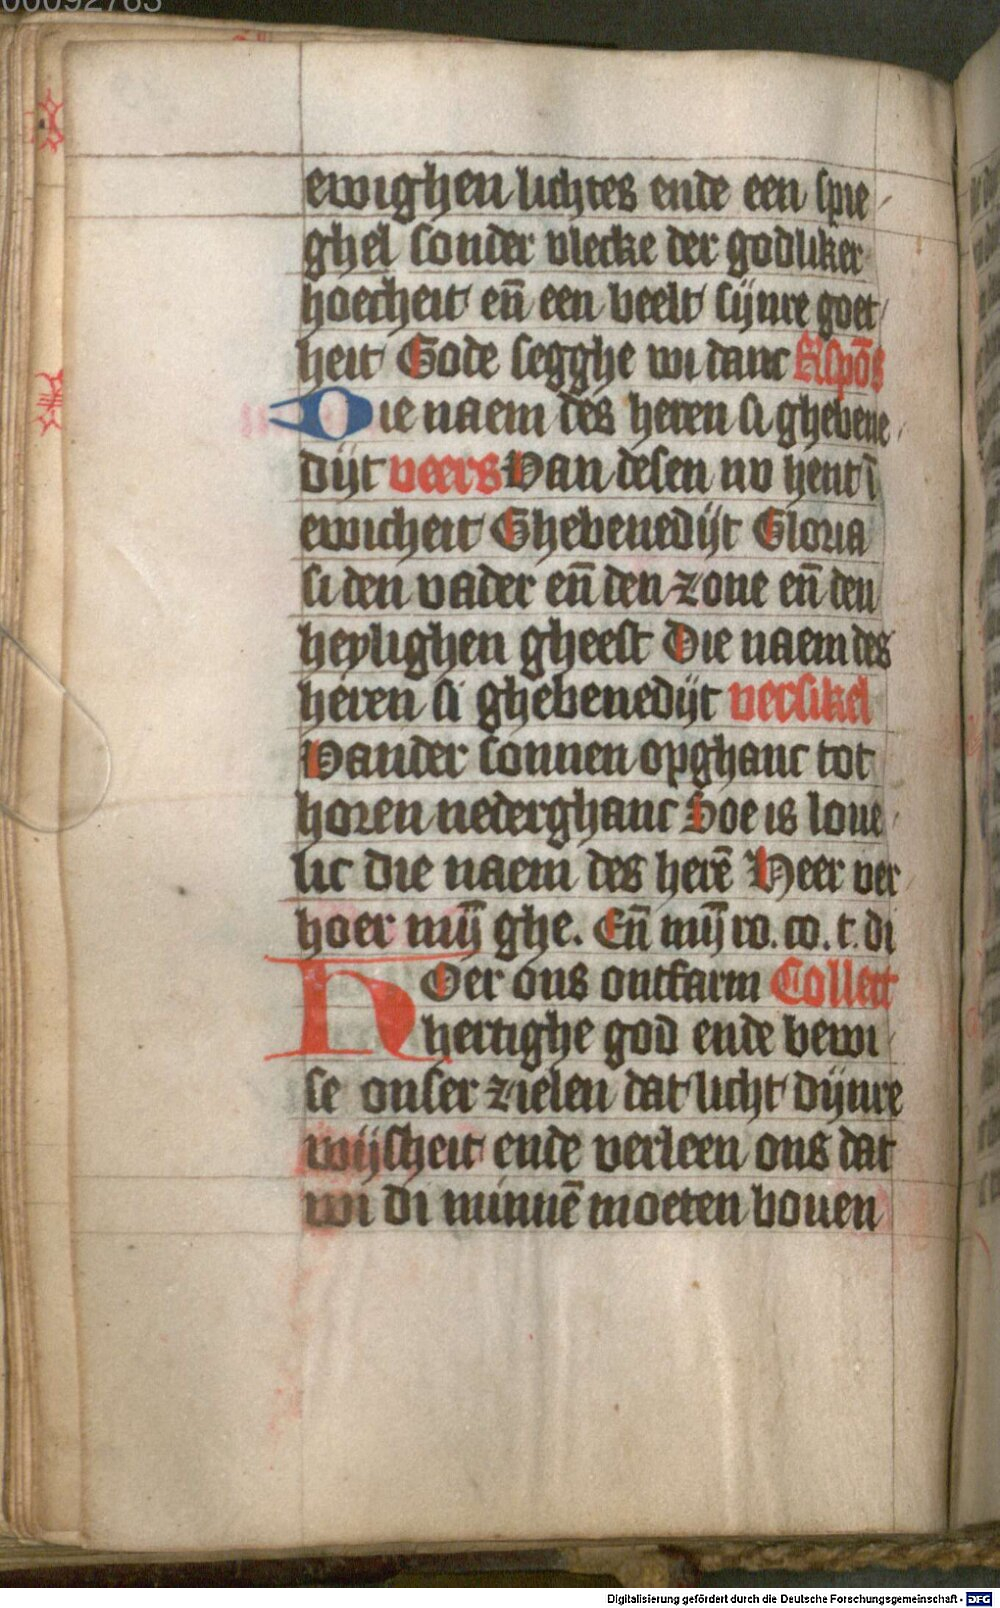 00092763
ewighen lichtes ende een spie
ghel sonder vlecke der godliker
hoecheit en̄ een beelt sijnre goet
heit Gode segghe wi danc Rspōs
Die naem des heren si ghebene
dijt veers Van desen nv hent ī
ewicheit Ghebenedijt Gloria
si den vader en̄ den zone en̄ den
heylighen gheest Die naem des
heren si ghebenedijt versikel
Vander sonnen opghanc tot
horen nederghanc Hoe is loue
lic die naem des herē Heer ver
hoer mȳ ghe. En̄ mȳ ro. co. t. di
Ouer ons ontfarm Collect
Hertighe god ende bewi
se onser zielen dat licht dijnre
wijsheit ende verleen ons dat
wi di minnē moeten bouen
Digitalisierung gefördert durch die Deutsche Forschungsgemeinschaft - DFG